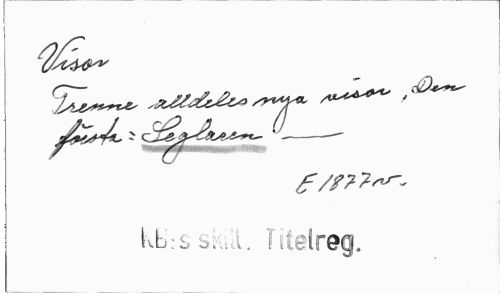 Visor
Trenne alldeles nya visor, Den
första: Seglaren —
E 1877 v.
KB:s skill. Titelreg.